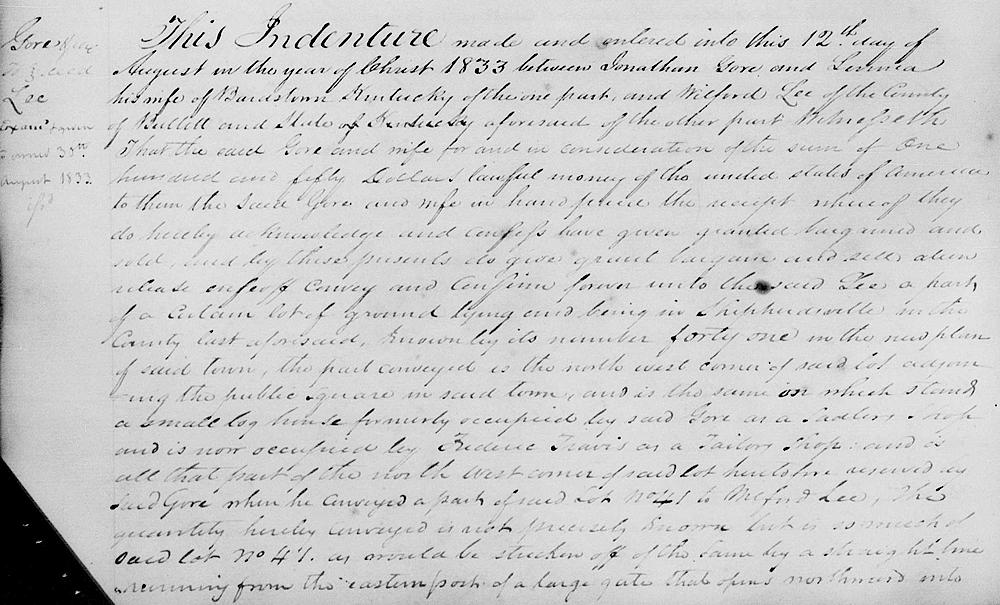 Gore & ux
To Deed
Lee
Exam^d & given
August 1833.
This Indenture made and entered into this 12th day of
August in the year of Christ 1833 between Jonathan Gore and Lavinia
his wife of Bardstown Kentucky of the one part, and Wilford Lee of the County
of Bullitt and State of Kentucky aforesaid of the other part Witnesseth
That the said Gore and wife for and in consideration of the sum of One
hundred and fifty Dollars lawful money of the united states of America
to them the said Gore and wife in hand paid the receipt whereof they
do hereby acknowledge and confess have given granted bargained and
sold, and by these presents do give grant bargain and sell alien
release enfeoff convey and confirm forever unto the said Lee a part
of a certain lot of ground lying and being in Shepherdsville in the
County last aforesaid, Known by its number forty one in the new plan
of said town, the part conveyed is the north west corner of said lot adjoin
-ing the public square in said town, and is the same on which stands
a small log house formerly occupied by said Gore as a Sadlers Shop
and is now occupied by Frederic Travis as a Tailors Shop: and is
all that part of the north West corner of said lot heretofore reserved by
said Gore when he conveyed a part of said Lot No 41 to Wilford Lee, The
quantity hereby conveyed is not precisely known but is so much of
said lot No 41. as would be stricken off of the same by a straight line
running from the eastern post of a large gate that opens northward into